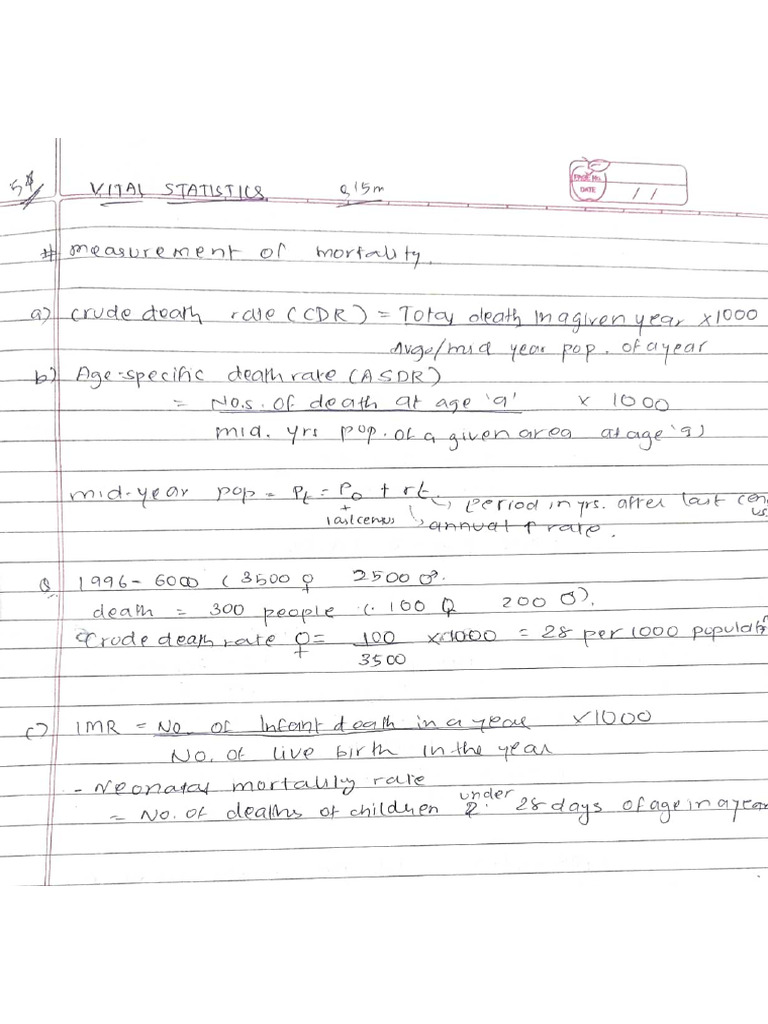 VITAL STATISTICS
PAGE NO.
DATE / /
# measurement of mortality.
a) Crude death rate (CDR) = Total death in a given year x1000
Avge/mid year pop. of a year
b) Age-specific death rate (ASDR)
= No.s. of death at age 'a' x 1000
mid. yrs pop. of a given area at age 'a)
mid-year pop = Pt = Po + rt. period in yrs. after last census
last census annual ↑ rate.
Q 1996 - 6000 ( 3500 ♀ 2500 ♂.
death = 300 people (. 100 ♀ 200 ♂).
Crude death rate ♀ = 100 x1000 = 28 per 1000 populatn
3500
c) IMR = No. of Infant death in a year x1000
No. of live birth in the year
- Neonatal mortality rate
= No. of deaths of children under 28 days of age in a year